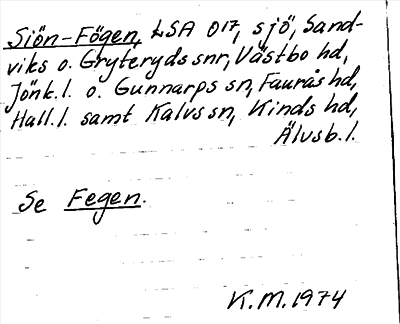 Siön-Fögen, LSA 017, sjö, Sand-
viks o. Gryteryds snr, Västbo hd,
Jönk.l. o. Gunnarps sn, Faurås hd,
Hall.l. samt Kalvs sn, Kinds hd,
Älvsb.l.
Se Fegen.
K.M. 1974